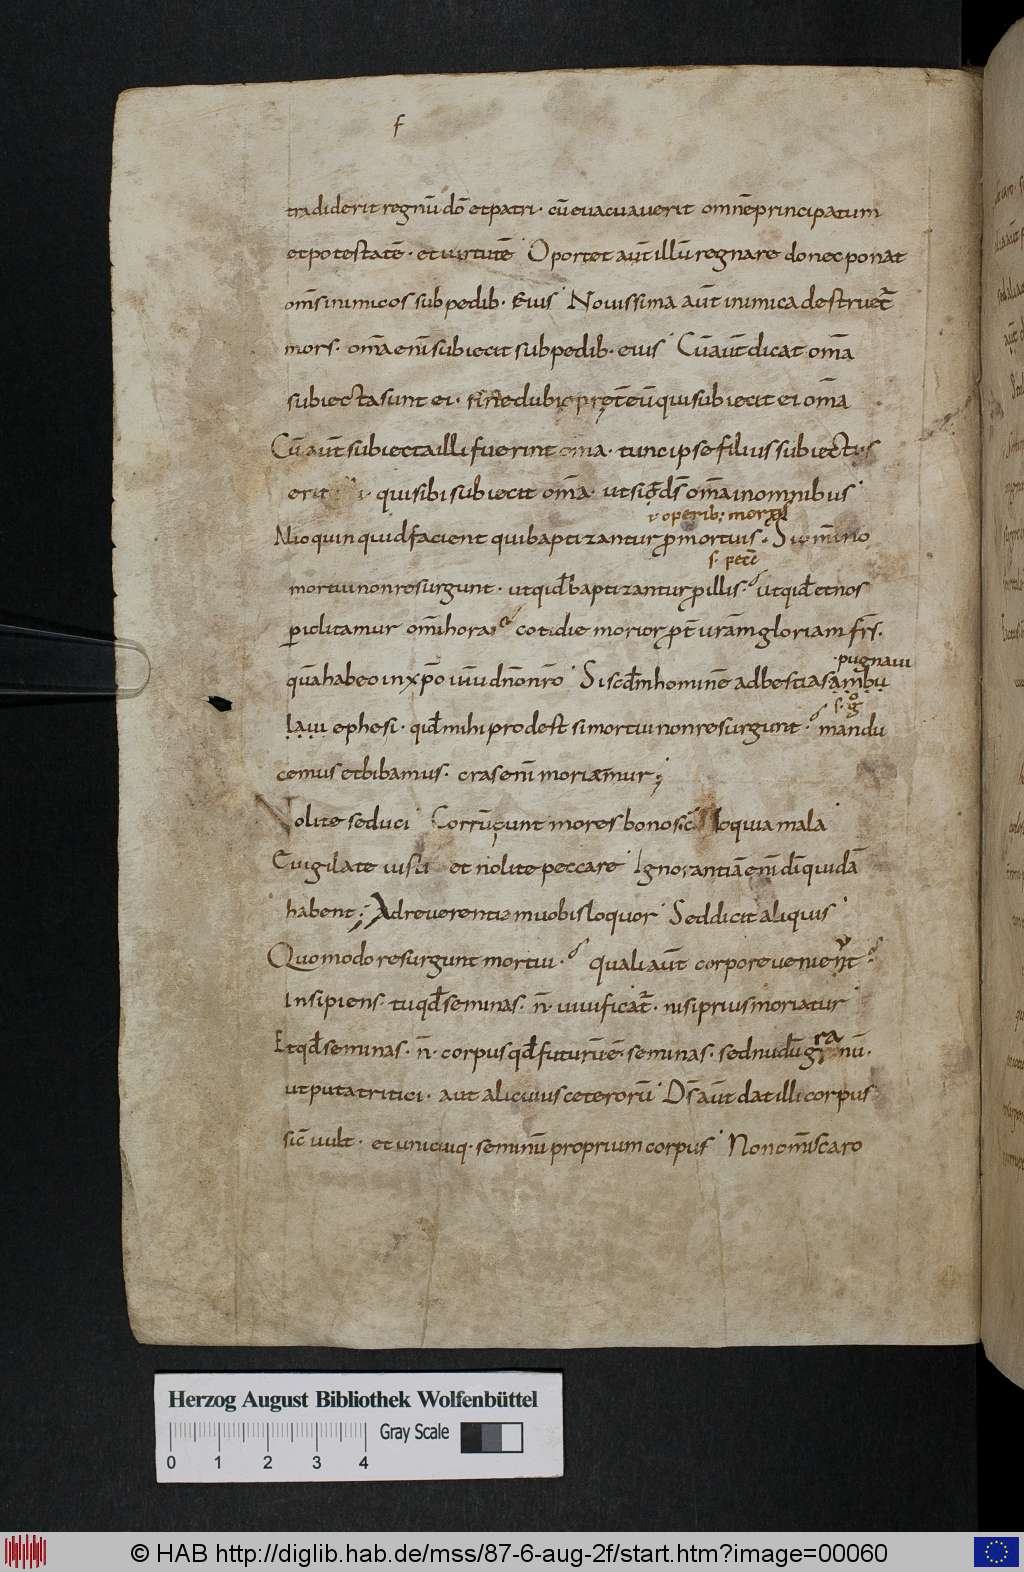 f
tradiderit regnū dō et patri · cū euacuauerit omnē principatum
et potestatē · et uirtutē Oportet aut̄ illū regnare donec ponat
om̄s inimicos sub pedib · Eius Nouissima aut̄ inimica destruet̄
mors · om̄a eni͞ subiecit sub pedib · eius Cū aut̄ dicat om̄a
subiecta sunt ei · sine dubio pręt̄ eū qui subiecit ei om̄a
Cū aut̄ subiecta illi fuerint om̄a · tunc ipse filius subiectus
erit · qui sibi subiecit om̄a · ut sit d̄s om̄a in omnibus
i · operib; mor
Alioquin quid facient qui baptizantur ꝓ mortuis · Si omnino
s · pecc̄
mortui non resurgunt · ut qid̄ baptizantur ꝓ illis · ut qid̄ et nos
periclitamur omi͞ hora cotidie morior ꝓt̄ urā͞m gloriam fr̄s ·
· pugnaui
quā habeo in xp̄o iū͞u dn̄o nr̄o Si scd̄m hominē ad bestias ambu
s · g
laui ephesi · qid̄ mihi prodest si mortui non resurgunt · mandu
cemus et bibamus · cras eni͞ moriaemur ;
Nolite seduci Corrūpunt mores bonos loquia mala
Euigilate iusti et nolite peccare Ignorantiā eni͞ dī͞ quidā
habent ; Ad reuerentiam uobis loquor Sed dicit aliquis
Quomodo resurgunt mortui · quali aut̄ corpore uenient
Insipiens · tu qd̄ seminas · n̄ · uiuificat̄ · nisi prius moriatur
Et qd̄ seminas · n̄ · corpus qd̄ futurū ē · seminas · sed nudū granū ·
ra
ut puta tritici · aut alicuius ceterorū D̄s aut̄ dat illi corpus
sic̄ uult · et unicuiq · seminū proprium corpus Non omi͞s caro
Herzog August Bibliothek Wolfenbüttel
Gray Scale
0 1 2 3 4
© HAB http://diglib.hab.de/mss/87-6-aug-2f/start.htm?image=00060